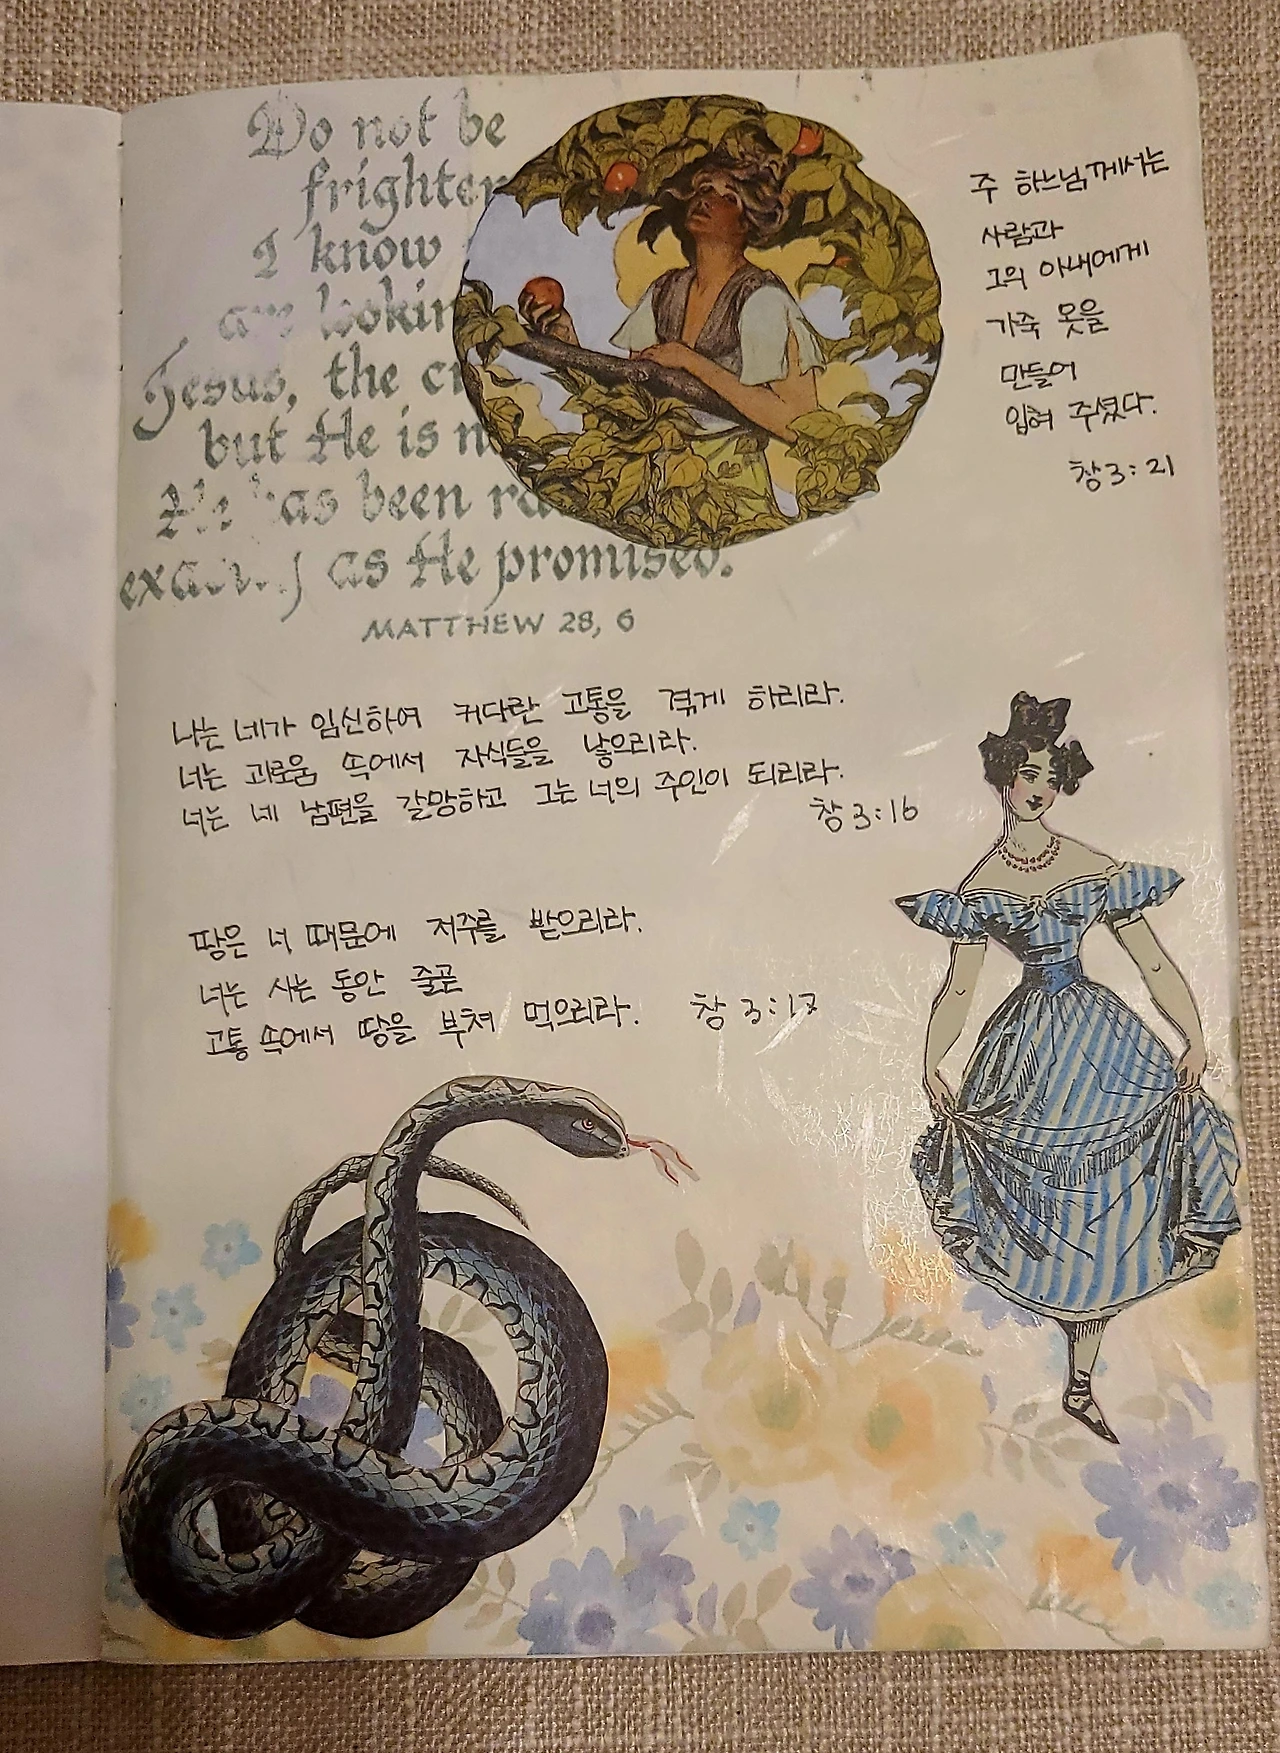 Do not be
frighten
I know
are lookin
Jesus, the cr
but He is n
He has been ra
exactly as He promised.
MATTHEW 28, 6
주 하느님께서는
사람과
그의 아내에게
가죽 옷을
만들어
입혀 주셨다.
창 3:21
나는 네가 임신하여 커다란 고통을 겪게 하리라.
너는 괴로움 속에서 자식들을 낳으리라.
너는 네 남편을 갈망하고 그는 너의 주인이 되리라.
창 3:16
땅은 너 때문에 저주를 받으리라.
너는 사는 동안 줄곧
고통 속에서 땅을 부쳐 먹으리라. 창 3:17